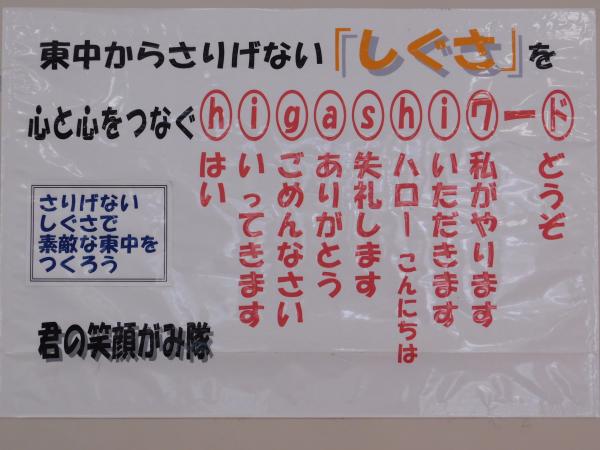 東中からさりげない「しぐさ」を
心と心をつなぐhigashiワード
はい
いってきます
ごめんなさい
ありがとう
失礼します
ハロー こんにちは
いただきます
私がやります
どうぞ
さりげない
しぐさで
素敵な東中を
つくろう
君の笑顔がみ隊